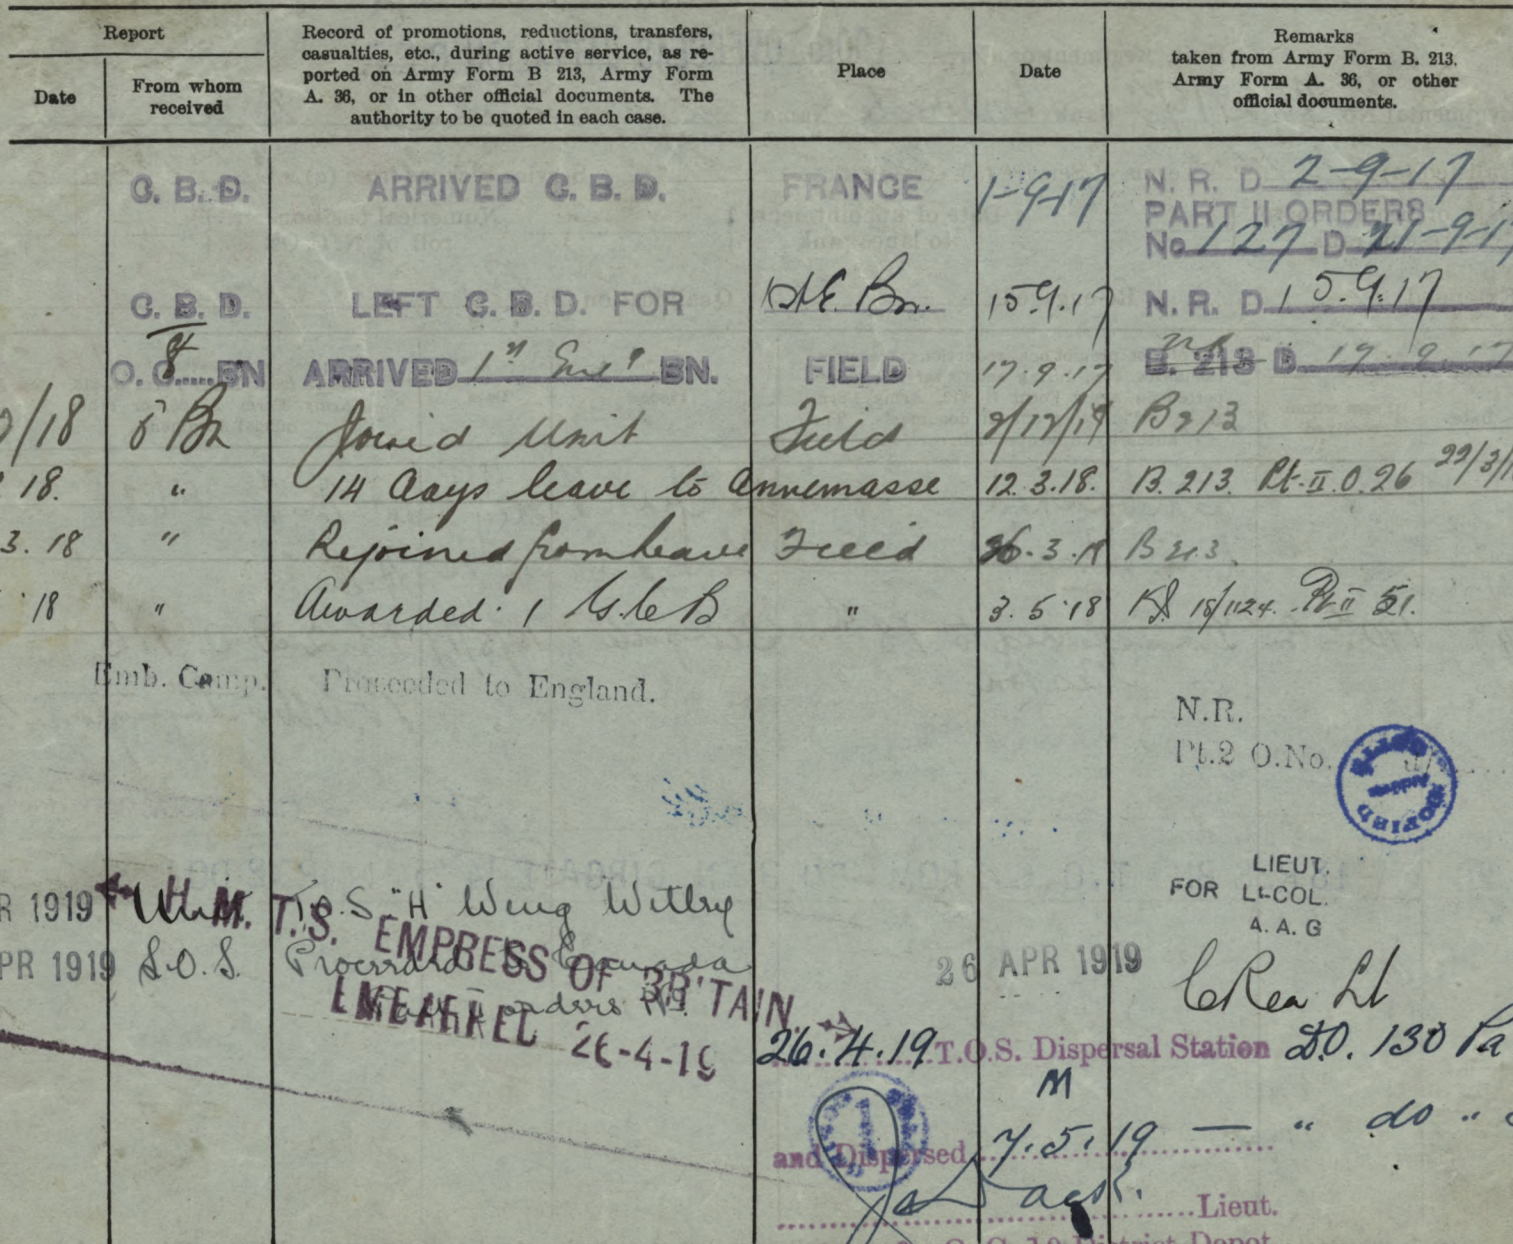 Report
Date
From whom
received
Record of promotions, reductions, transfers,
casualties, etc., during active service, as re-
ported on Army Form B 213, Army Form
A. 36, or in other official documents. The
authority to be quoted in each case.
Place
Date
Remarks
taken from Army Form B. 213,
Army Form A. 36, or other
official documents.
C. B. D. ARRIVED C. B. D. FRANCE 1-9-17 N. R. D 2-9-17
PART II ORDERS
No 127 D 21-9-17
C. B. D. LEFT C. B. D. FOR Bn. 15.9.17 N. R. D 15.9.17
O. C. 8 BN ARRIVED 1st BN. FIELD 17.9.17 B. 213 D 17.9.17
/18 5 Bn Joined Unit Field B213
18. " 14 days leave to Annemasse 12.3.18. B. 213. Pt. II. O. 26 22/3/
3. 18 " Rejoined from leave Field 26.3.18 B213.
18 " Awarded 1 G.C.B " 3.5.18 18/1124. Pt II 51.
Emb. Camp. Proceeded to England.
N.R.
Pt.2 O.No.
COPIED
LIEUT.
FOR Lt-COL.
A. A. G
R 1919 T.O.S "H" Wing Witley
H.M.T.S. EMPRESS OF BRITAIN
PR 1919 S.O.S. Proceeded to Canada 26 APR 1919
CRea Lt
EMBARKED 26-4-19
26.4.19 T.O.S. Dispersal Station D.O. 130 Pa
M
and Dispersed 7.5.19 — " do "
Lieut.
District Depot